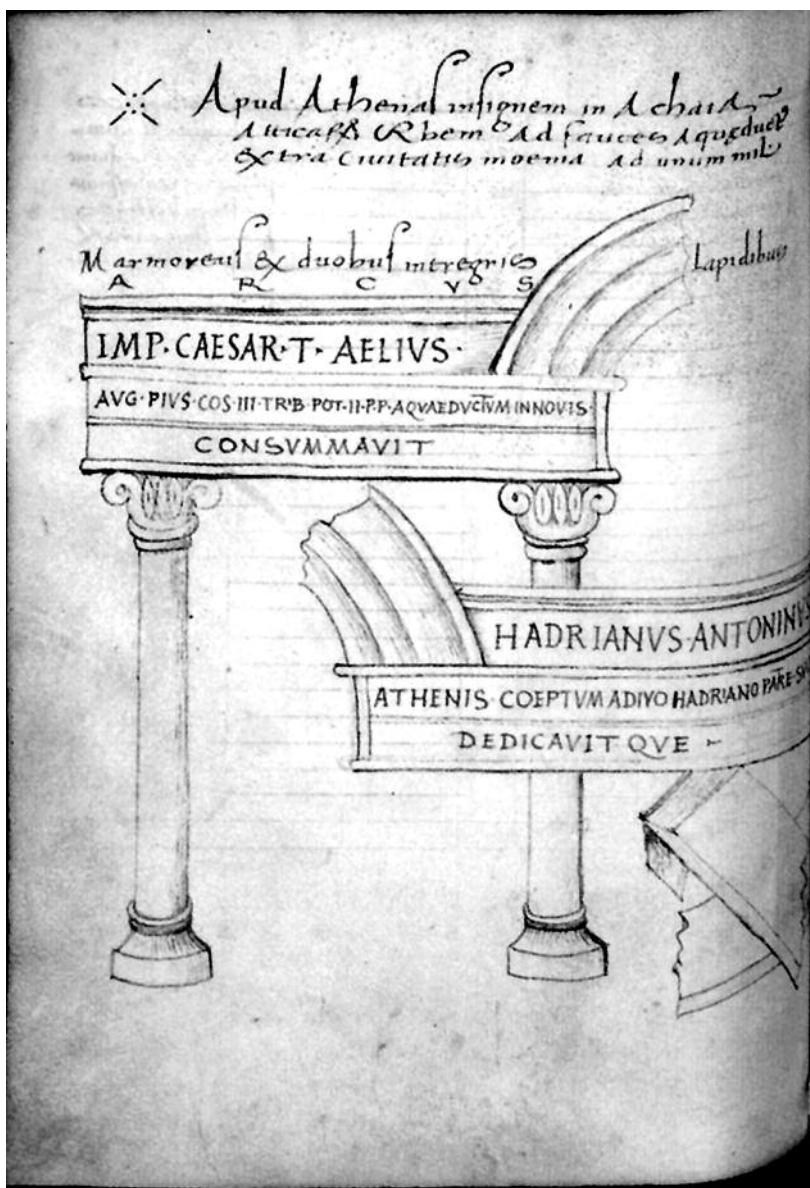 Apud Athenas insignem in Achaia
Atticasque Ad fauces Aquęduct
extra Civitatis moenia Ad unum mil
Marmoreus & duobus integris Lapidibus
A R C V S
IMP·CAESAR·T·AELIVS·
AVG·PIVS·COS·III·TRIB POT·II·P·P·AQVAEDVCTVM IN NOVIS·
CONSVMMAVIT
HADRIANVS·ANTONINVS
ATHENIS·COEPTVM A DIVO HADRIANO PATRE·
DEDICAVIT QVE